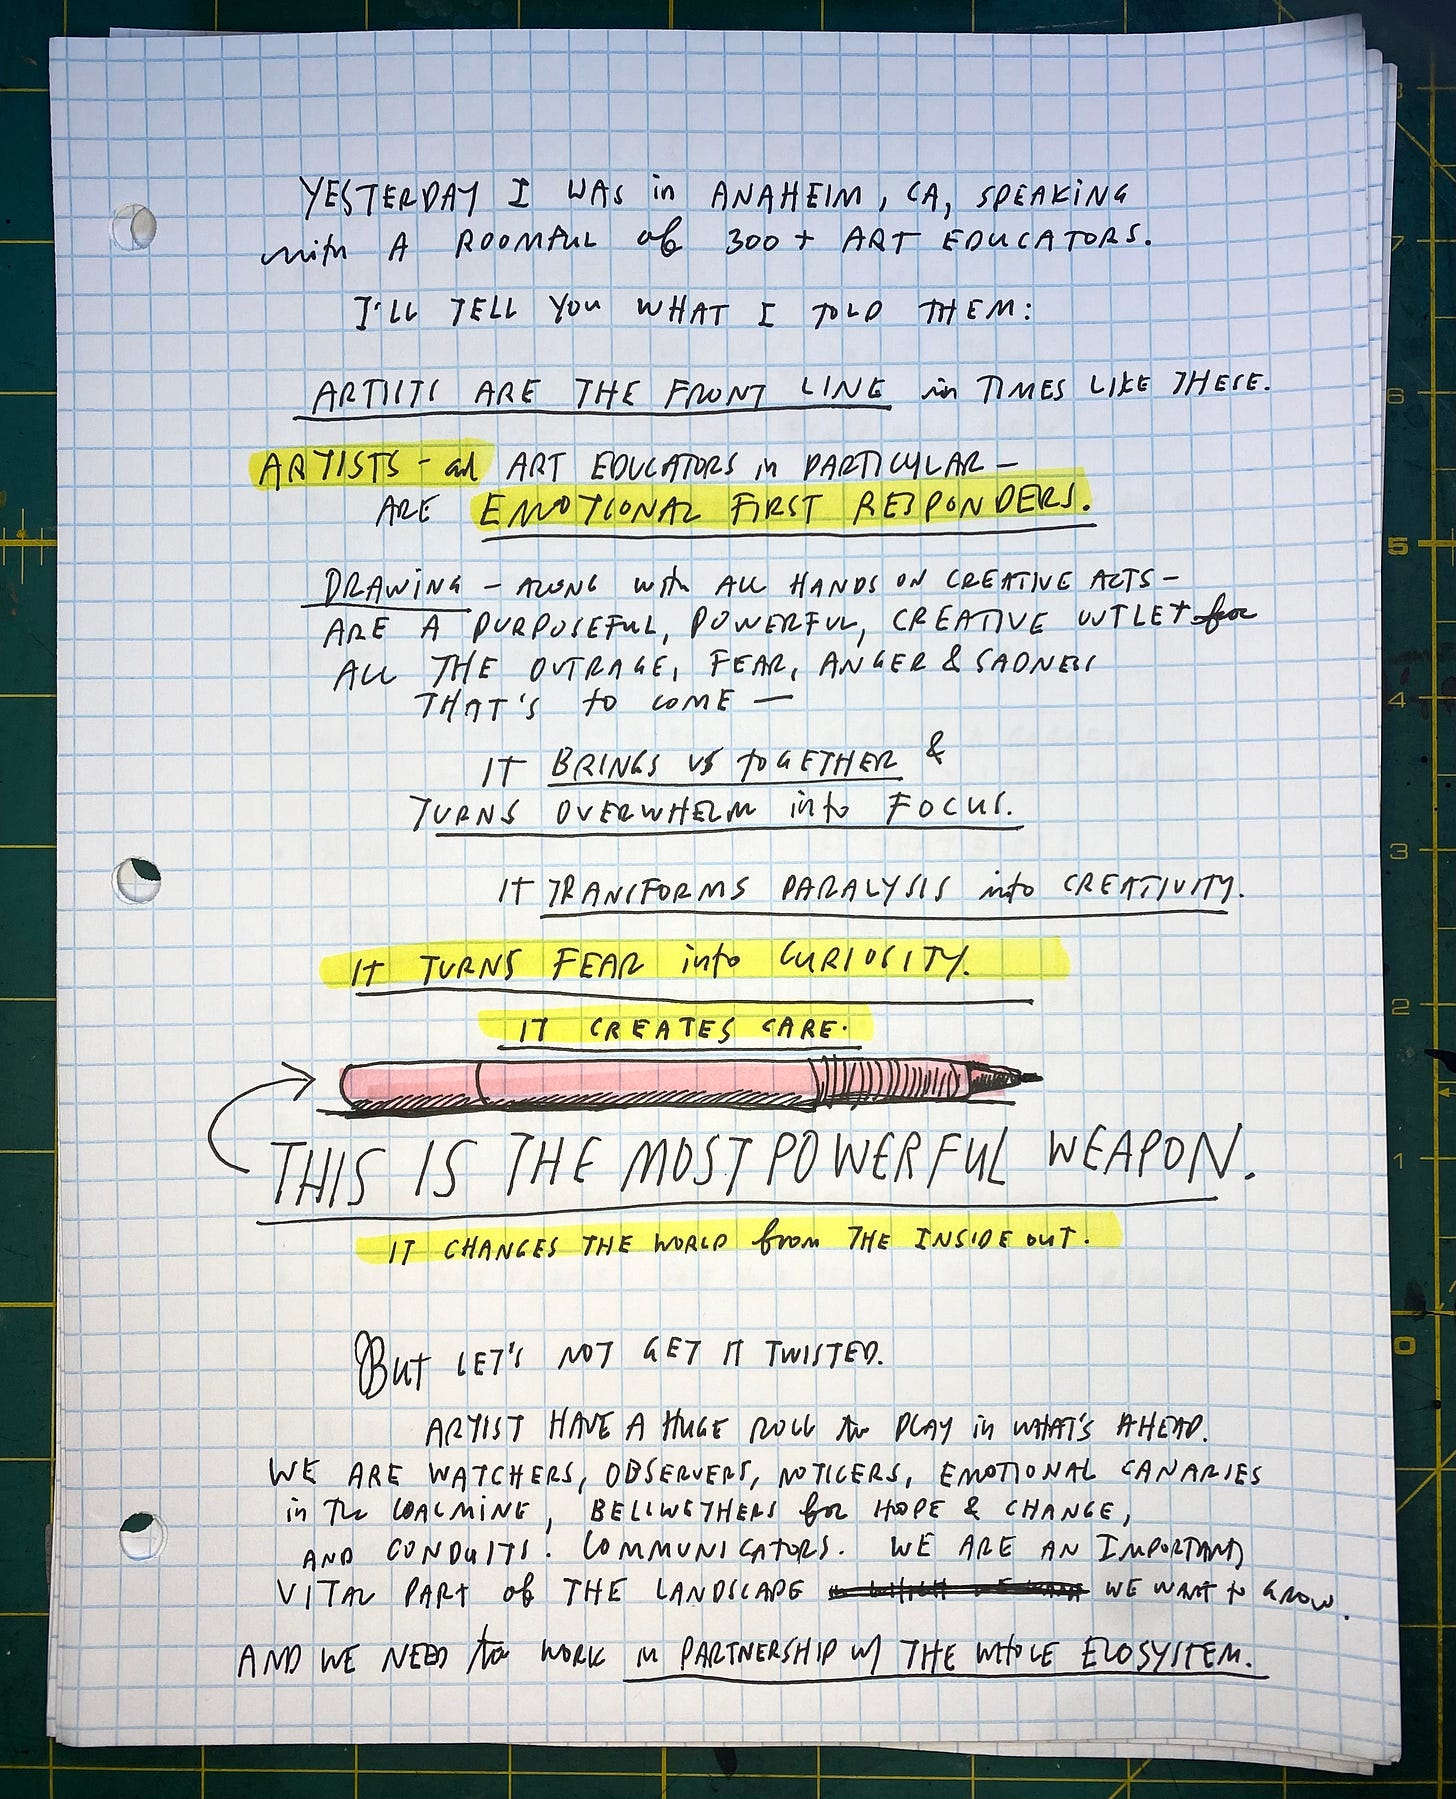 YESTERDAY I WAS in ANAHEIM, CA, SPEAKING
with A ROOMFUL of 300+ ART EDUCATORS.
I'LL TELL YOU WHAT I TOLD THEM:
ARTISTS ARE THE FRONT LINE in TIMES LIKE THESE.
ARTISTS - and ART EDUCATORS in PARTICULAR -
ARE EMOTIONAL FIRST RESPONDERS.
DRAWING - ALONG with ALL HANDS ON CREATIVE ACTS -
ARE A PURPOSEFUL, POWERFUL, CREATIVE OUTLET for
ALL THE OUTRAGE, FEAR, ANGER & SADNESS
THAT'S to COME —
IT BRINGS US TOGETHER &
TURNS OVERWHELM into FOCUS.
IT TRANSFORMS PARALYSIS into CREATIVITY.
IT TURNS FEAR into CURIOSITY.
IT CREATES CARE.
THIS IS THE MOST POWERFUL WEAPON.
IT CHANGES THE WORLD from THE INSIDE OUT.
BUT LET'S NOT GET IT TWISTED.
ARTIST HAVE A HUGE ROLL to PLAY in WHAT'S AHEAD.
WE ARE WATCHERS, OBSERVERS, NOTICERS, EMOTIONAL CANARIES
in The COALMINE, BELLWETHERS for HOPE & CHANGE,
AND CONDUITS! COMMUNICATORS. WE ARE AN IMPORTANT,
VITAL PART of THE LANDSCAPE WE WANT to GROW.
AND WE NEED to WORK in PARTNERSHIP w/ THE WHOLE ECOSYSTEM.
8
7
6
5
4
3
2
1
0